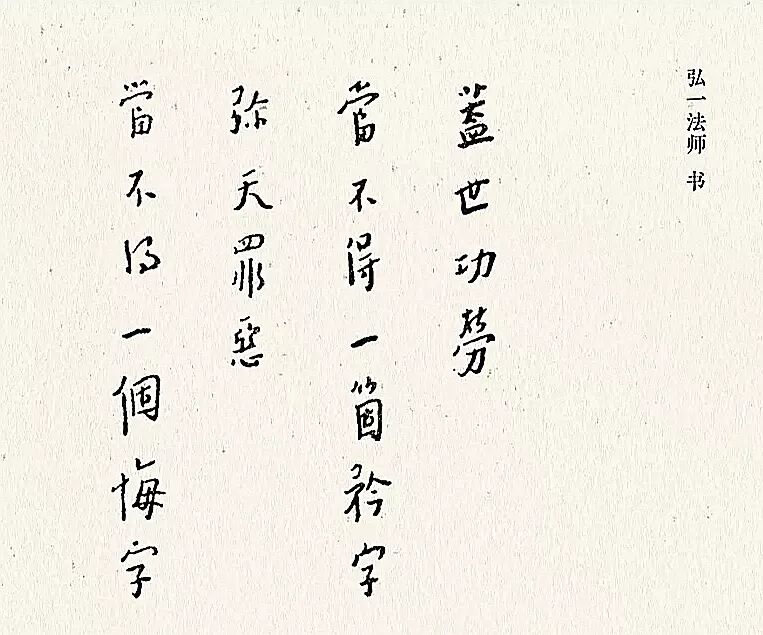 弘一法师 书
蓋世功勞
當不得一箇矜字
弥天罪惡
當不得一個悔字